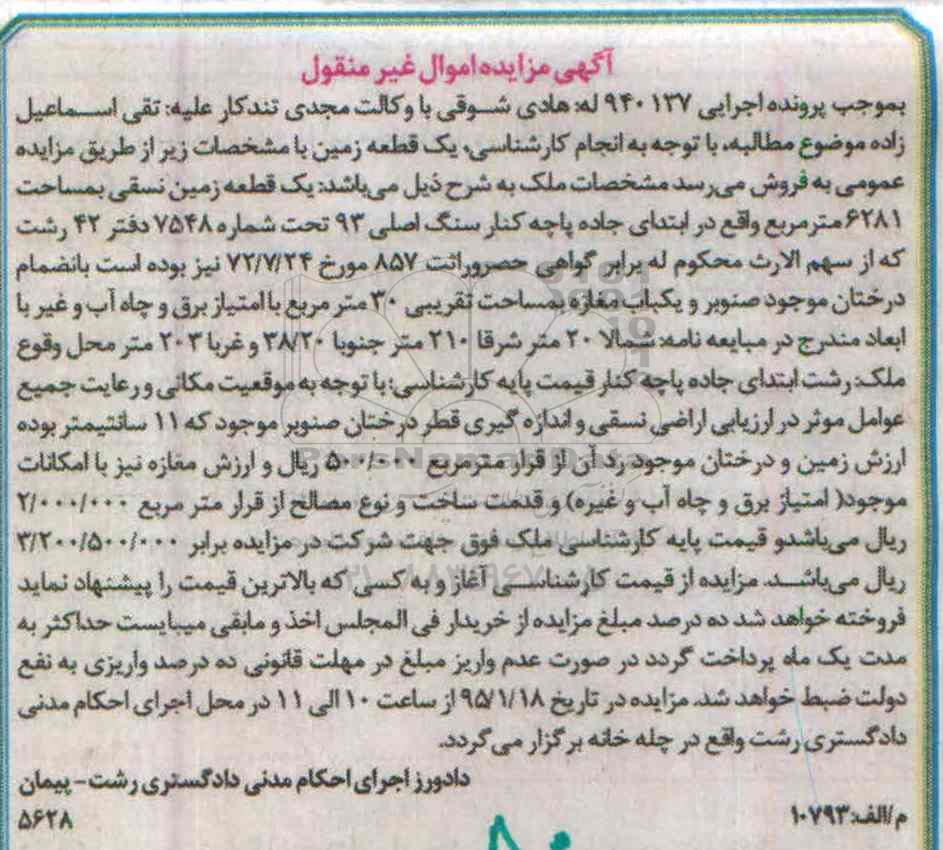 آگهی مزایده اموال غیر منقول
بموجب پرونده اجرایی ۹۴۰۱۳۷ له: هادی شوقی با وکالت مجدی تندکار علیه: تقی اسماعیل
زاده موضوع مطالبه، با توجه به انجام کارشناسی، یک قطعه زمین با مشخصات زیر از طریق مزایده
عمومی به فروش می‌رسد مشخصات ملک به شرح ذیل می‌باشد: یک قطعه زمین نسقی بمساحت
۶۲۸۱ مترمربع واقع در ابتدای جاده پاچه کنار سنگ اصلی ۹۳ تحت شماره ۷۵۴۸ دفتر ۴۲ رشت
که از سهم الارث محکوم له برابر گواهی حصروراثت ۸۵۷ مورخ ۷۲/۷/۲۴ نیز بوده است بانضمام
درختان موجود صنوبر و یکباب مغازه بمساحت تقریبی ۳۰ متر مربع با امتیاز برق و چاه آب و غیر با
ابعاد مندرج در مبایعه نامه: شمالا ۲۰ متر شرقا ۲۱۰ متر جنوبا ۳۸/۲۰ و غربا ۲۰۳ متر محل وقوع
ملک: رشت ابتدای جاده پاچه کنار قیمت پایه کارشناسی: با توجه به موقعیت مکانی و رعایت جمیع
عوامل موثر در ارزیابی اراضی نسقی و اندازه گیری قطر درختان صنوبر موجود که ۱۱ سانتیمتر بوده
ارزش زمین و درختان موجود رد آن از قرار مترمربع ۵۰۰/۰۰۰ ریال و ارزش مغازه نیز با امکانات
موجود( امتیاز برق و چاه آب و غیره) و قدمت ساخت و نوع مصالح از قرار متر مربع ۲/۰۰۰/۰۰۰
ریال می‌باشدو قیمت پایه کارشناسی ملک فوق جهت شرکت در مزایده برابر ۳/۲۰۰/۵۰۰/۰۰۰
ریال می‌باشد. مزایده از قیمت کارشناسی آغاز و به کسی که بالاترین قیمت را پیشنهاد نماید
فروخته خواهد شد ده درصد مبلغ مزایده از خریدار فی المجلس اخذ و مابقی میبایست حداکثر به
مدت یک ماه پرداخت گردد در صورت عدم واریز مبلغ در مهلت قانونی ده درصد واریزی به نفع
دولت ضبط خواهد شد. مزایده در تاریخ ۹۵/۱/۱۸ از ساعت ۱۰ الی ۱۱ در محل اجرای احکام مدنی
دادگستری رشت واقع در چله خانه برگزار می‌گردد.
دادورز اجرای احکام مدنی دادگستری رشت- پیمان
م/الف: ۱۰۷۹۳
۵۶۲۸
ParsNamadData